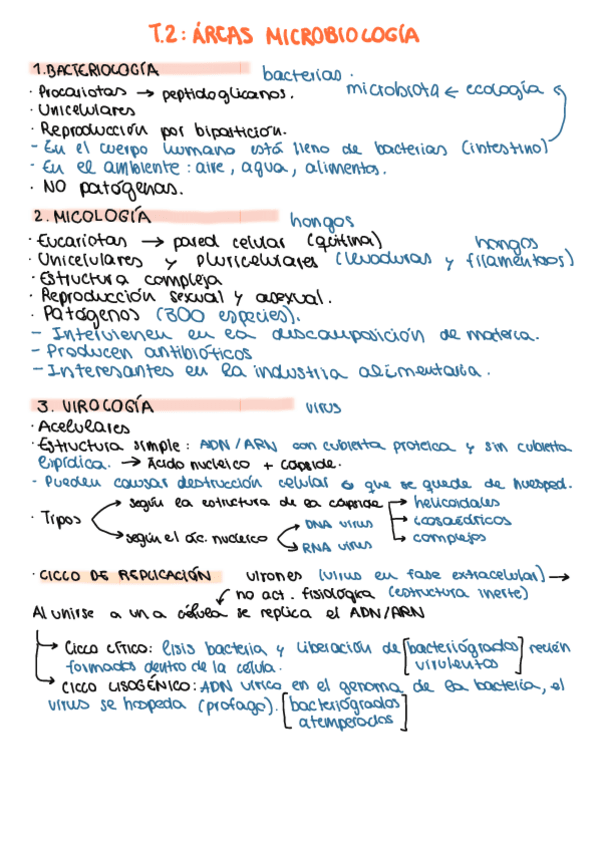 T.2: ÁREAS MICROBIOLOGÍA
1. BACTERIOLOGÍA bacterias.
· Procariotas → peptidoglicanos. microbiota ← ecología
· Unicelulares
· Reproducción por bipartición.
- En el cuerpo humano está lleno de bacterias (intestino)
- En el ambiente: aire, agua, alimentos.
· NO patógenas.
2. MICOLOGÍA hongos
· Eucariotas → pared celular (quitina) hongos
· Unicelulares y pluricelulares (levaduras y filamentosos)
· Estructura compleja
· Reproducción sexual y asexual.
· Patógenos (300 especies).
- Intervienen en la descomposición de materia.
- Producen antibióticos
- Interesantes en la industria alimentaria.
3. VIROLOGÍA virus
· Acelulares
· Estructura simple: ADN/ARN con cubierta proteica y sin cubierta
lipídica. → Ácido nucleico + cápside.
- Pueden causar destrucción celular o que se quede de huesped.
· Tipos
según la estructura de la cápside
helicoidales
icosaédricos
complejos
según el ác. nucleico
DNA virus
RNA virus
· CICLO DE REPLICACIÓN virones (virus en fase extracelular) →
no act. fisiológica (estructura inerte)
Al unirse a una célula se replica el ADN/ARN
Ciclo lítico: lisis bacteria y liberación de [bacteriógrados virulentos] recién
formados dentro de la célula.
CICLO LISOGÉNICO: ADN vírico en el genoma de la bacteria, el
virus se hospeda (profago). [bacteriógrados
atemperados]